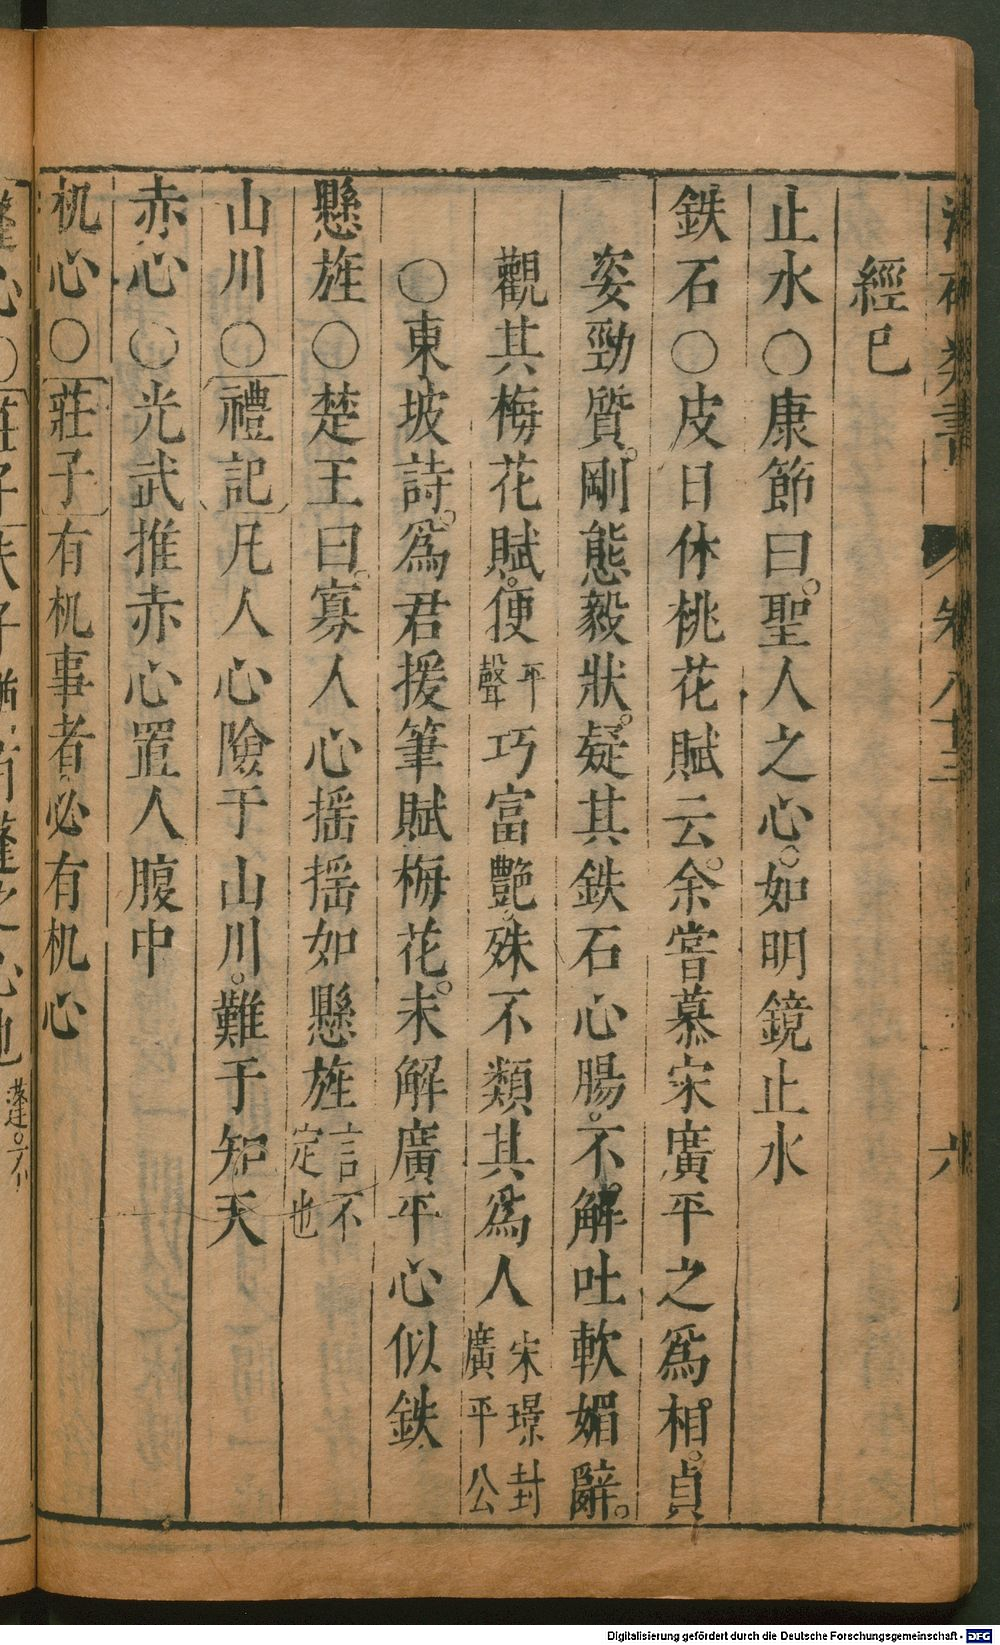 卷八十三
六
經已
止水○康節曰。聖人之心。如明鏡止水
鉄石○皮日休桃花賦云。余嘗慕宋廣平之爲相。貞
姿勁質。剛態毅狀。疑其鉄石心腸。不解吐軟媚辭。
觀其梅花賦。便平聲巧富艷。殊不類其爲人宋璟封廣平公
○東坡詩。爲君援筆賦梅花。未解廣平心似鉄
懸旌○楚王曰。寡人心揺揺如懸旌言不定也
山川○禮記凡人心險于山川。難于知天
赤心○光武推赤心置人腹中
机心○莊子有机事者必有机心
蓬之心也
Digitalisierung gefördert durch die Deutsche Forschungsgemeinschaft - DFG